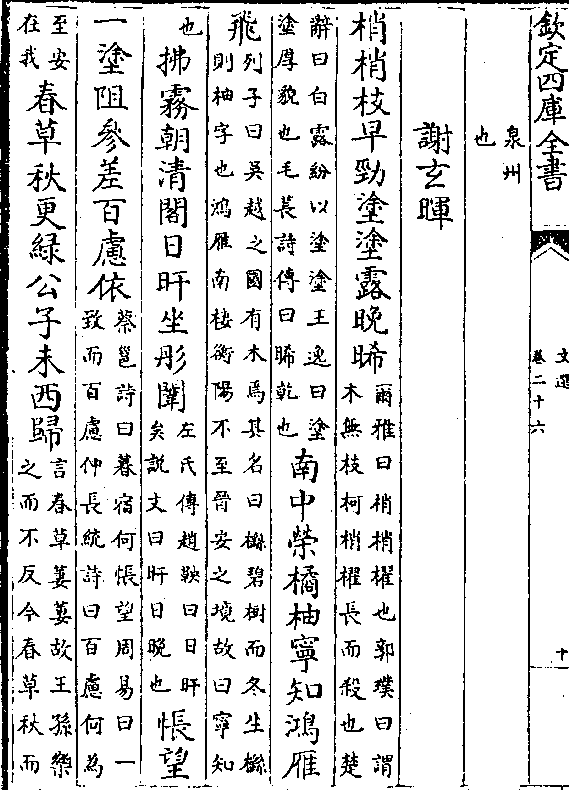 欽定四庫全書
文選
卷二十六
十
泉州
也
謝玄暉
梢梢枝早勁塗塗露晚晞
爾雅曰梢梢櫂也郭璞曰謂
木無枝柯梢櫂長而殺也楚
辭曰白露紛以塗塗王逸曰塗
塗厚貌也毛萇詩傳曰晞乾也
南中榮橘柚寧知鴻雁
飛
列子曰吳越之國有木焉其名曰櫾碧樹而冬生櫾
則柚字也鴻雁南棲衡陽不至晉安之境故曰寧知
也
拂霧朝清閣日旰坐彤闈
左氏傳趙鞅曰日旰
矣說文曰旰日晚也
悵望
一塗阻參差百慮依
蔡邕詩曰暮宿何悵望周易曰一
致而百慮仲長統詩曰百慮何為
至安
在我
春草秋更緑公子未西歸
言春草萋萋故王孫樂
之而不反今春草秋而